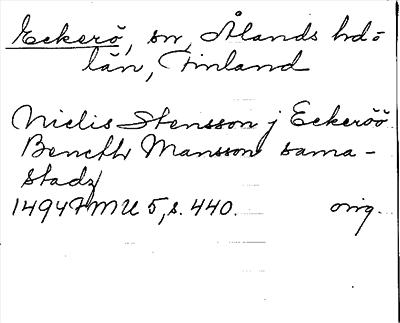 Eckerö, sn, Ålands hd o
län, Finland
Nielis Stensson j Eckeröö
Beneth Mansson sama-
stadz
1494 FMU 5, s. 440. orig.